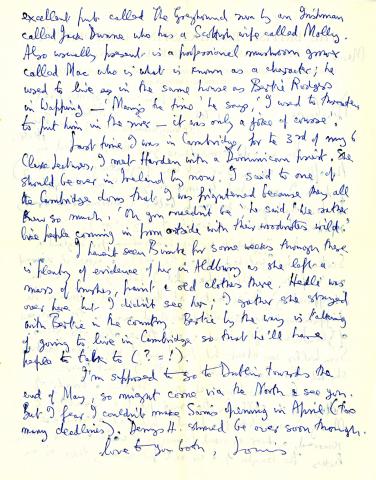 excellent pub called The Greyhound run by an Irishman
called Jack Dunne who has a Scottish wife called Molly.
Also usually present is a professional mushroom grower
called Mac who is what is known as a character; he
used to live as in the same house as Bertie Rodgers
in Wapping — 'Many's the time' he says, 'I used to threaten
to put him in the river — it was only a joke of course'.
Last time I was in Cambridge, for the 3rd of my 6
Clark Lectures, I met with a Dominican priest. She
should be over in Ireland by now. I said to one of
the Cambridge dons that I was frightened because they all
knew so much. 'Oh you needn't be' he said, 'we rather
like people coming in from outside with their woodnotes wild.'
I haven't seen for some weeks though there
is plenty of evidence of her in Aldbury as she left a
mass of brushes, paint & old clothes there. Hedli was
over here but I didn't see her; I gather she stayed
with Bertie in the country. Bertie by the way is talking
of going to live in Cambridge so that he'll have
people to talk to (? = !).
I'm supposed to go to Dublin towards the
end of May, so might come via the North & see you.
But I fear I couldn't make Sam's opening in April (too
many deadlines). Denys H. should be over soon though.
love to you both, Louis